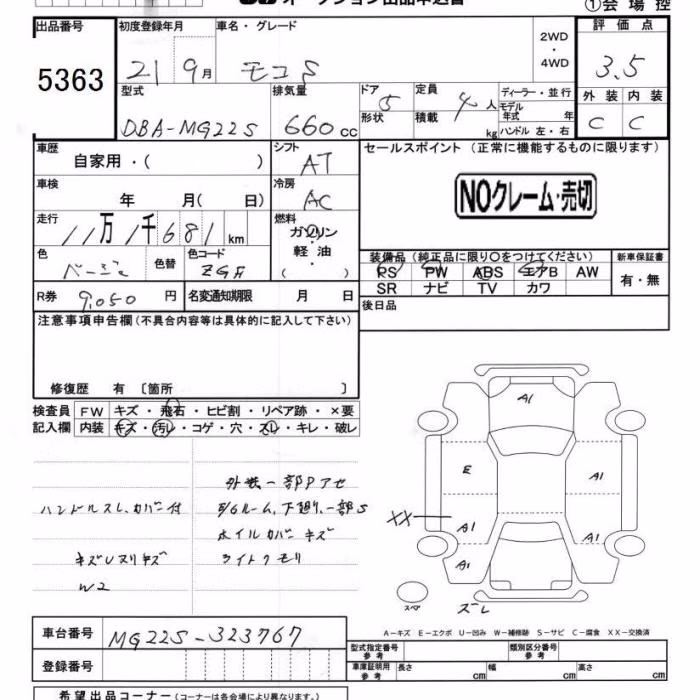 オークション出品申込書
①会場控
出品番号 初度登録年月 車名・グレード 2WD・4WD 評価点
5363 21 9月 モコS 3.5
型式 排気量 ドア 定員 ディーラー・並行 外装 内装
DBA-MG22S 660cc 5 4人 モデル年式 年 C C
形状 積載 kg ハンドル 左・右
車歴 シフト セールスポイント(正常に機能するものに限ります)
自家用・( ) AT
車検 冷房 NOクレーム・売切
年 月( 日) AC
走行 燃料
11万1千681km ガソリン・軽油・( )
色 色替 色コード 装備品(純正品に限り○をつけてください) 新車保証書
ベージュ PS PW ABS エアB AW 有・無
SR ナビ TV カワ
R券 9,050円 名変通知期限 月 日 後日品
注意事項申告欄(不具合内容等は具体的に記入して下さい)
修復歴 有〔箇所 〕
検査員 FW キズ・飛石・ヒビ割・リペア跡・×要
記入欄 内装 キズ・汚レ・コゲ・穴・スレ・キレ・破レ
外装一部Pアセ
ハンドルスレ、カバー付 E/Gルーム、下廻り一部S
ホイルカバーキズ
ライトクモリ
W2
A1
E A1
XX A1 A1
A1
スペア ズレ
A-キズ E-エクボ U-凹み W-補修跡 S-サビ C-腐食 XX-交換済
車台番号 MG22S-323767
型式指定番号 参考 類別区分番号 参考
登録番号 車庫証明用 参考 長さ cm 幅 cm 高さ cm
希望出品コーナー(コーナーは各会場により異なります。)